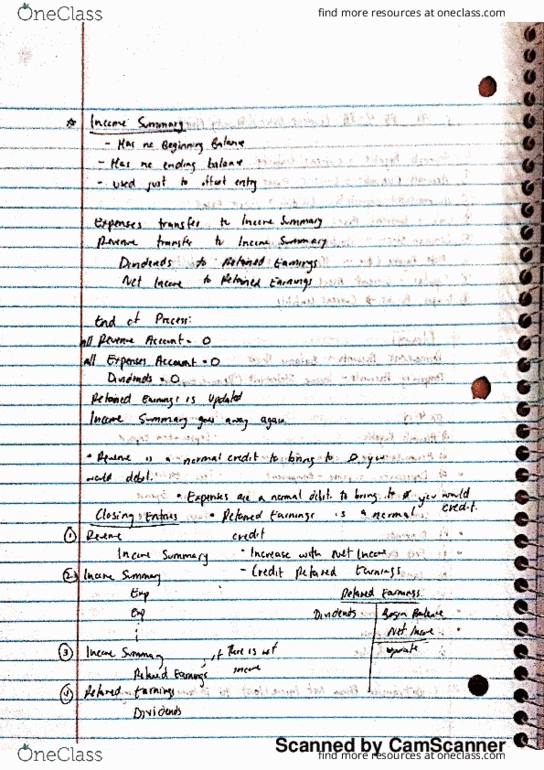 OneClass
find more resources at oneclass.com
* Income Summary
- Has no Beginning Balance
- Has no ending balance
- used just to offset entry
Expenses transfer to Income Summary
Revenue transfer to Income Summary
Dividends to Retained Earnings
Net Income to Retained Earnings
End of Process:
all Revenue Account = 0
all Expenses Account = 0
Dividends = 0
Retained Earnings is Updated
Income Summary goes away again
• Revenue is a normal credit to bring to 0 you
would debt.
• Expenses are a normal debit to bring to 0 you would
credit.
Closing Entries
• Retained Earnings is a normal
credit
① Revenue
Income Summary
• Increase with Net Income
② Income Summary
- Credit Retained Earnings
Exp
Exp
Retained Earnings
Dividends
Begin Balance
Net Income
update
③ Income Summary
, if there is net
income
Retained Earnings
④ Retained Earnings
Dividends
Scanned by CamScanner
OneClass
find more resources at oneclass.com